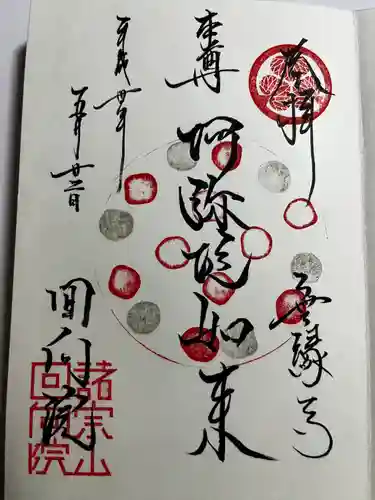 奉拝
無縁寺
本尊
阿弥陀如来
平成廿年
五月廿二日
回向院
諸宗山
回向院